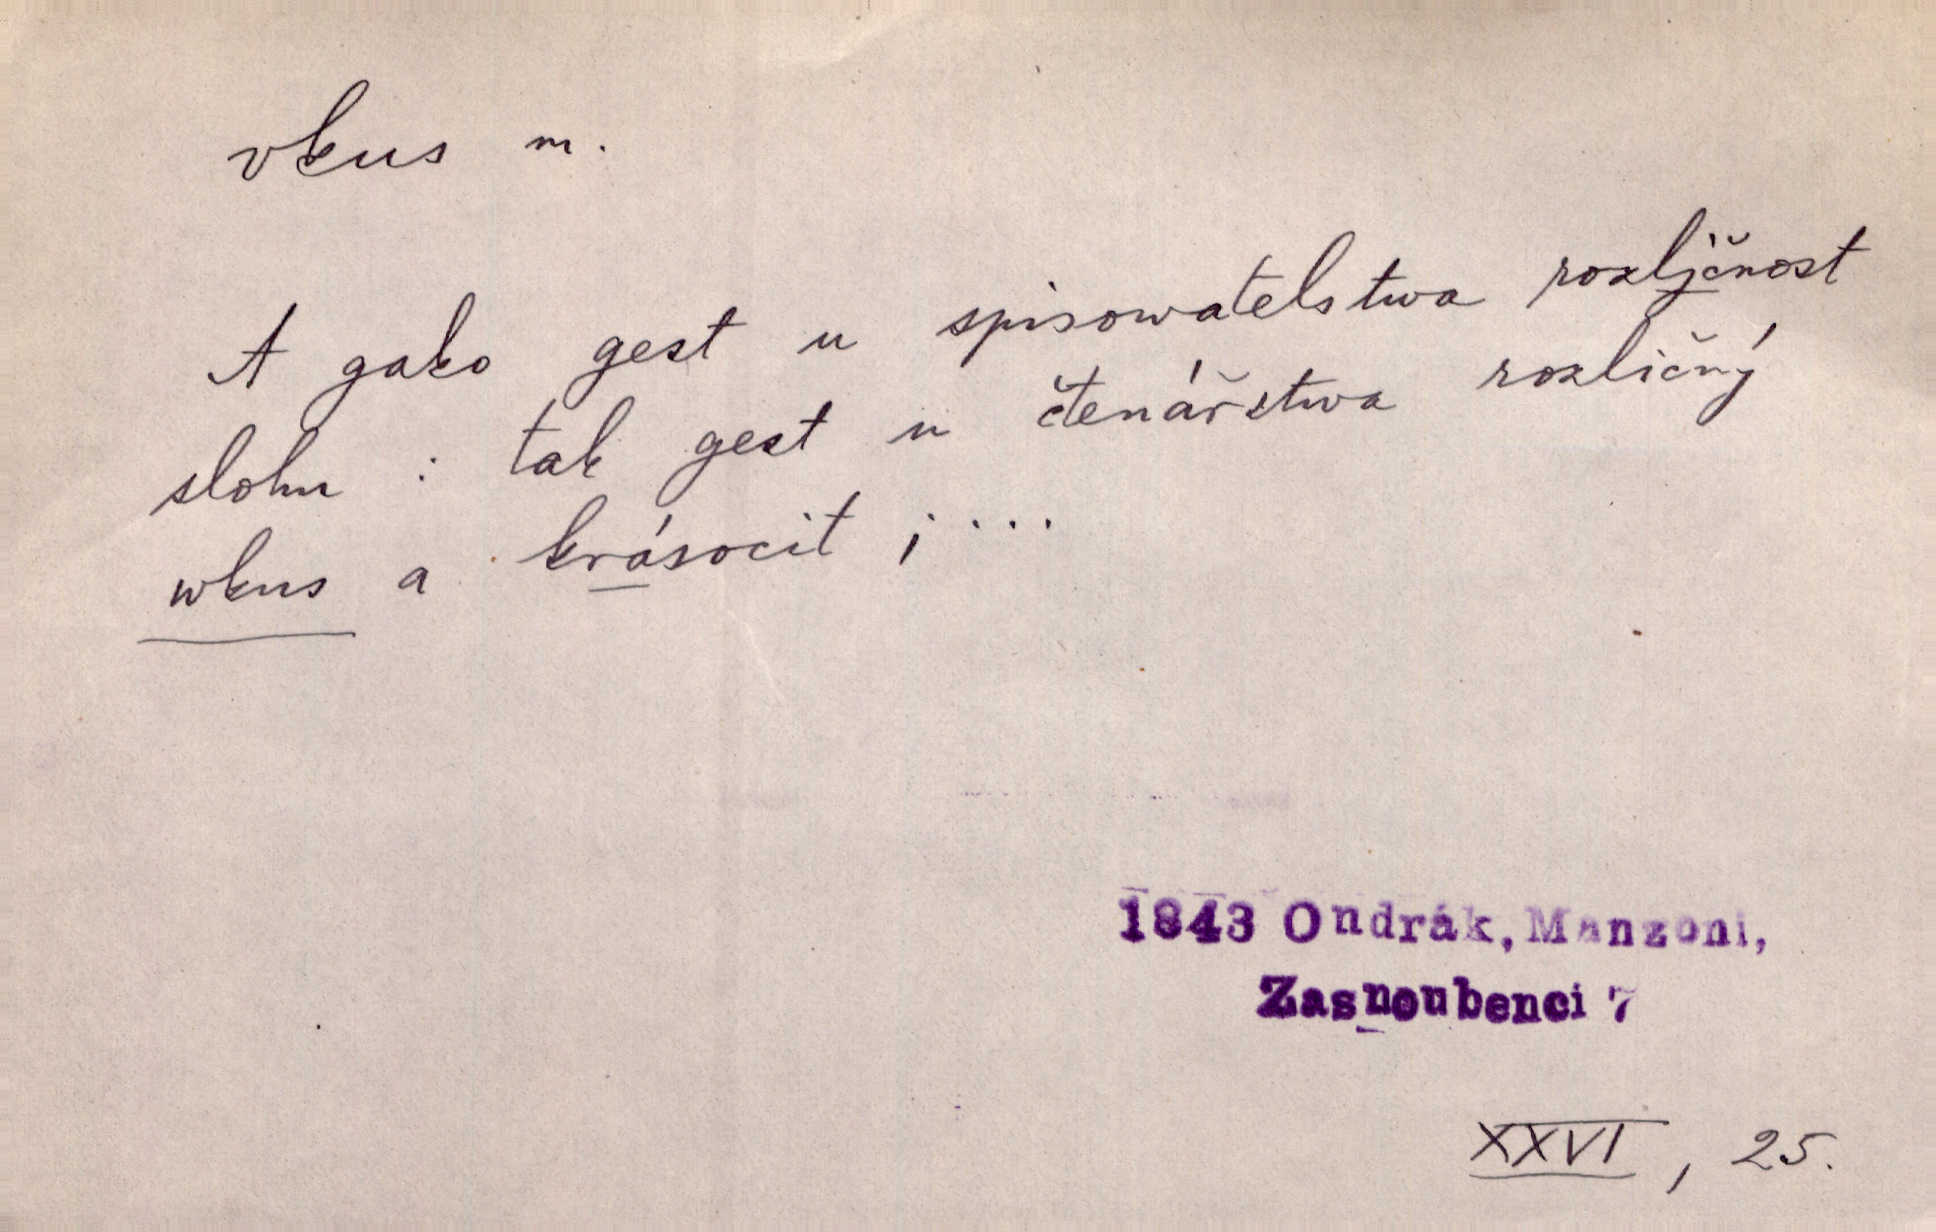 vkus m.
A gako gest u spisowatelstwa rozljčnost
slohu : tak gest u čtenářstwa rozličný
wkus a krásocit ; ...
1843 Ondrák, Manzoni,
Zasnoubenci 7
XXVI, 25.